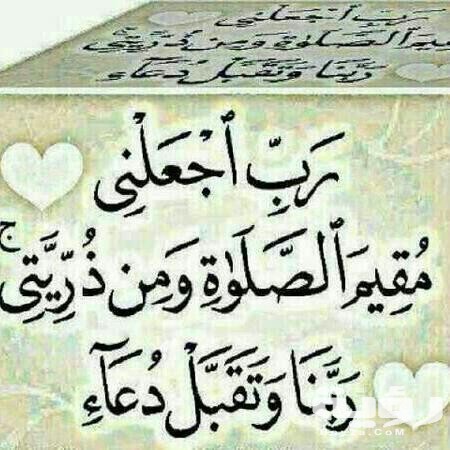 رَبِّ ٱجْعَلْنِى
مُقِيمَ ٱلصَّلَوٰةِ وَمِن ذُرِّيَّتِى ۚ
رَبَّنَا وَتَقَبَّلْ دُعَآءِ
رَبِّ ٱجْعَلْنِى
مُقِيمَ ٱلصَّلَوٰةِ وَمِن ذُرِّيَّتِى ۚ
رَبَّنَا وَتَقَبَّلْ دُعَآءِ
رؤية